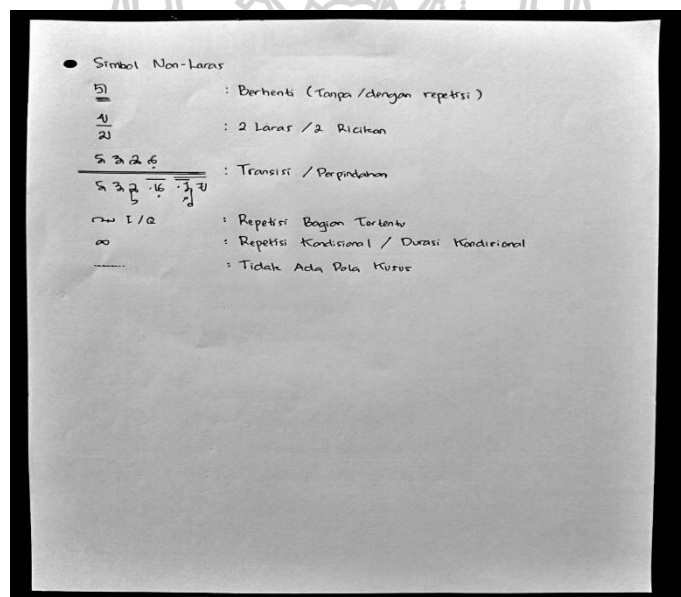 ● Simbol Non-Laras
: Berhenti (Tanpa/dengan repetisi)
: 2 Laras /2 Ricikan
5 3 2 6
: Transisi / Perpindahan
5 3 2 .6
I/Q : Repetisi Bagian Tertentu
∞ : Repetisi Kondisional / Durasi Kondisional
........ : Tidak Ada Pola Kusus